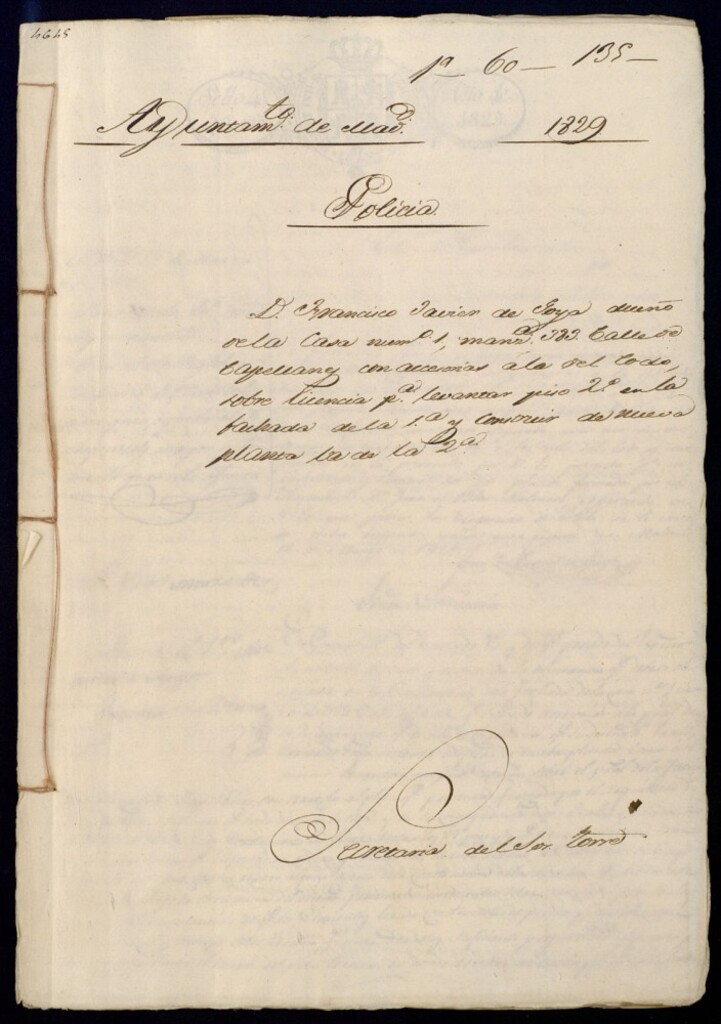 1ª — 60 — 135 —
Ayuntamto. de Madd. 1829
Policia.
D. Francisco Javier de Goya dueño
de la Casa num.o 1, manz.a 383. Calle de
Capellanes con accesorias á la del Codo,
sobre licencia p.a levantar piso 2.o en la
fachada de la 1.a y construir de nueva
planta la de la 2.a
Secretaria del Sor. Torre